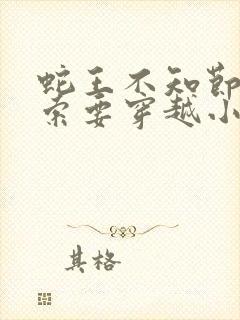 蛇王不知節
索要穿越小
其格